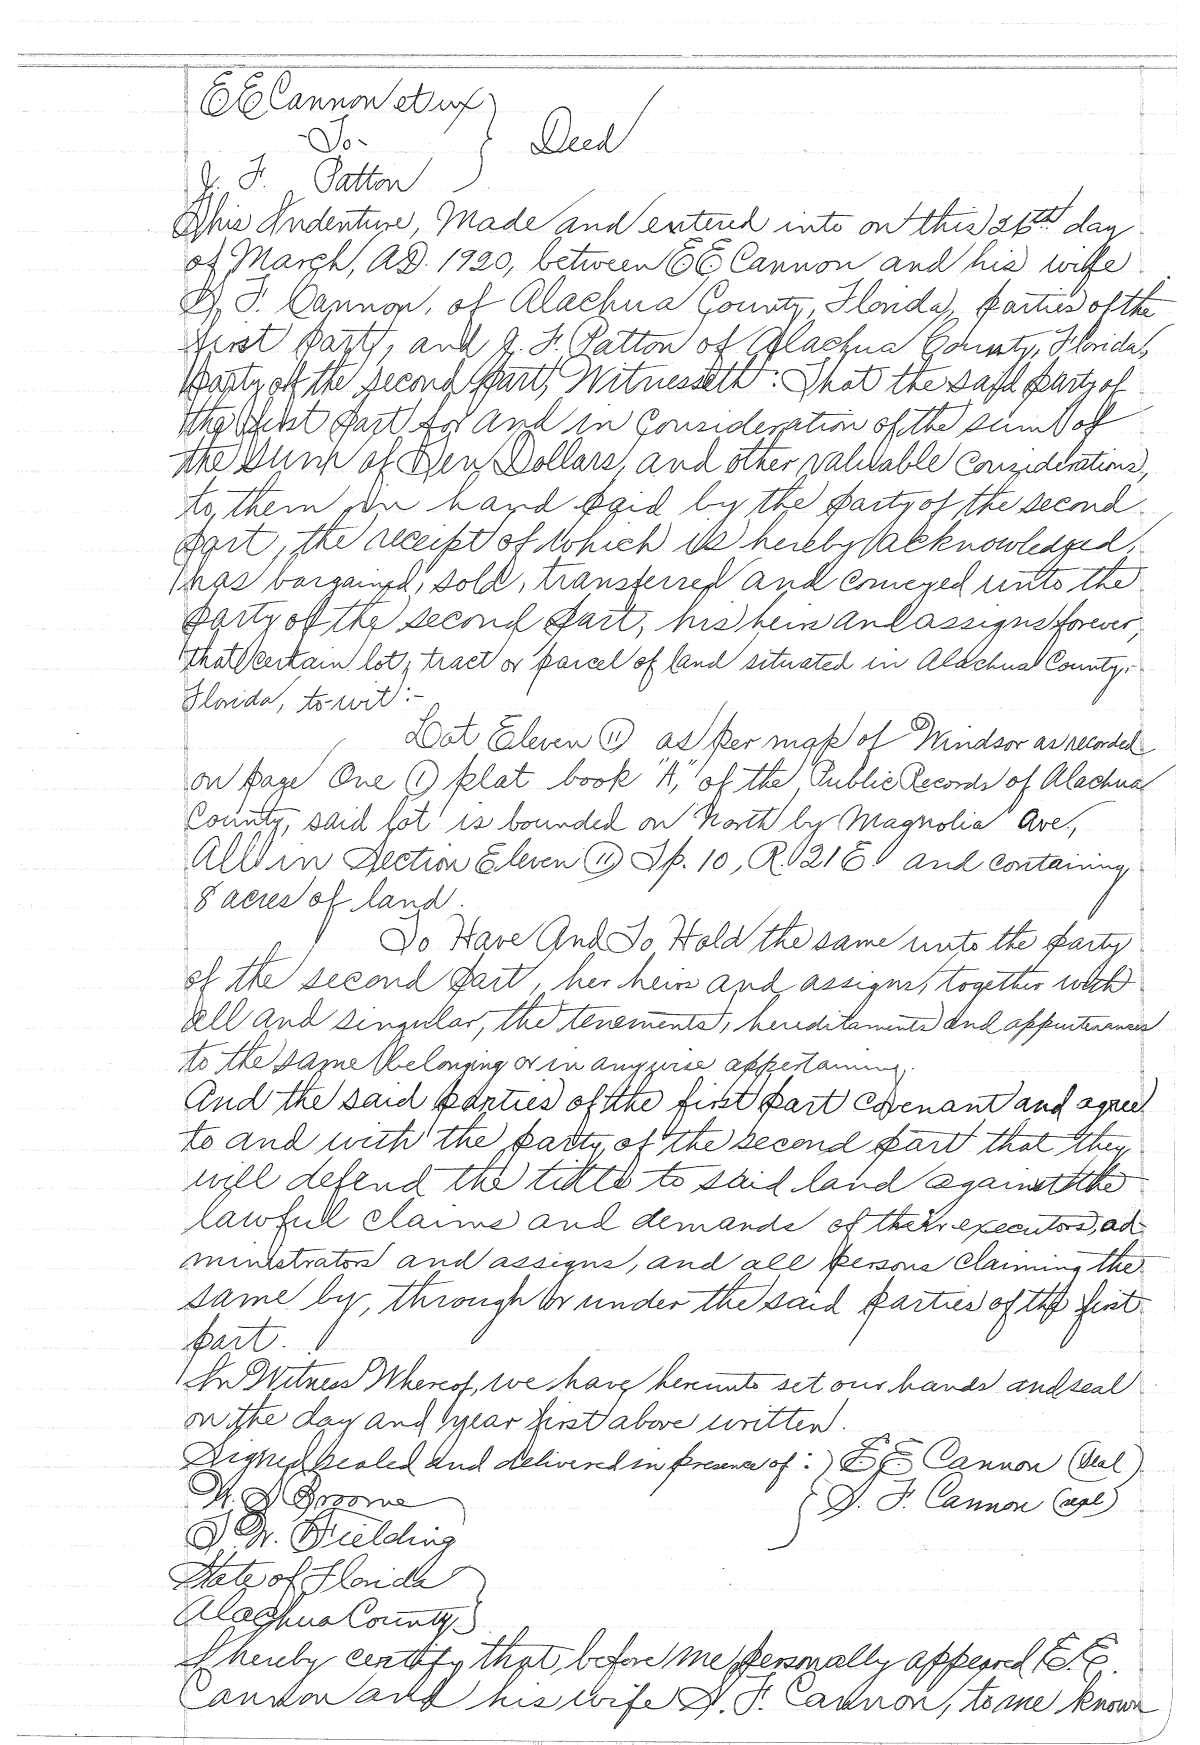 E E Cannon et ux
-To-
J. F. Patton
Deed
This Indenture, Made and entered into on this 26th day
of March, A.D. 1920, between E E Cannon and his wife
S. F. Cannon, of Alachua County, Florida, parties of the
first part, and J. F. Patton of Alachua County, Florida,
party of the second part, Witnesseth: That the said party of
the first part for and in consideration of the sum of
the sum of Ten Dollars, and other valuable considerations,
to them in hand paid by the party of the second
part, the receipt of which is hereby acknowledged,
has bargained, sold, transferred and conveyed unto the
party of the second part, his heirs and assigns forever,
that certain lot, tract or parcel of land situated in Alachua County,
Florida, to-wit:-
Lot Eleven (11) as per map of Windsor as recorded
on page One (1) plat book "A," of the Public Records of Alachua
County, said lot is bounded on North by Magnolia Ave.,
All in Section Eleven (11) Tp. 10, R. 21 E. and containing
8 acres of land.
To Have And To Hold the same unto the party
of the second part, her heirs and assigns, together with
all and singular, the tenements, hereditaments and appurtenances
to the same belonging or in anywise appertaining.
And the said parties of the first part covenant and agree
to and with the party of the second part that they
will defend the title to said land against the
lawful claims and demands of their executors, ad-
ministrators and assigns, and all persons claiming the
same by, through or under the said parties of the first
part.
In Witness Whereof, we have hereunto set our hands and seal
on the day and year first above written.
Signed sealed and delivered in presence of: E E Cannon (Seal)
S. F. Cannon (seal)
Groome
Fielding
State of Florida
Alachua County
I hereby certify that before me personally appeared E. E.
Cannon and his wife S. F. Cannon, to me known